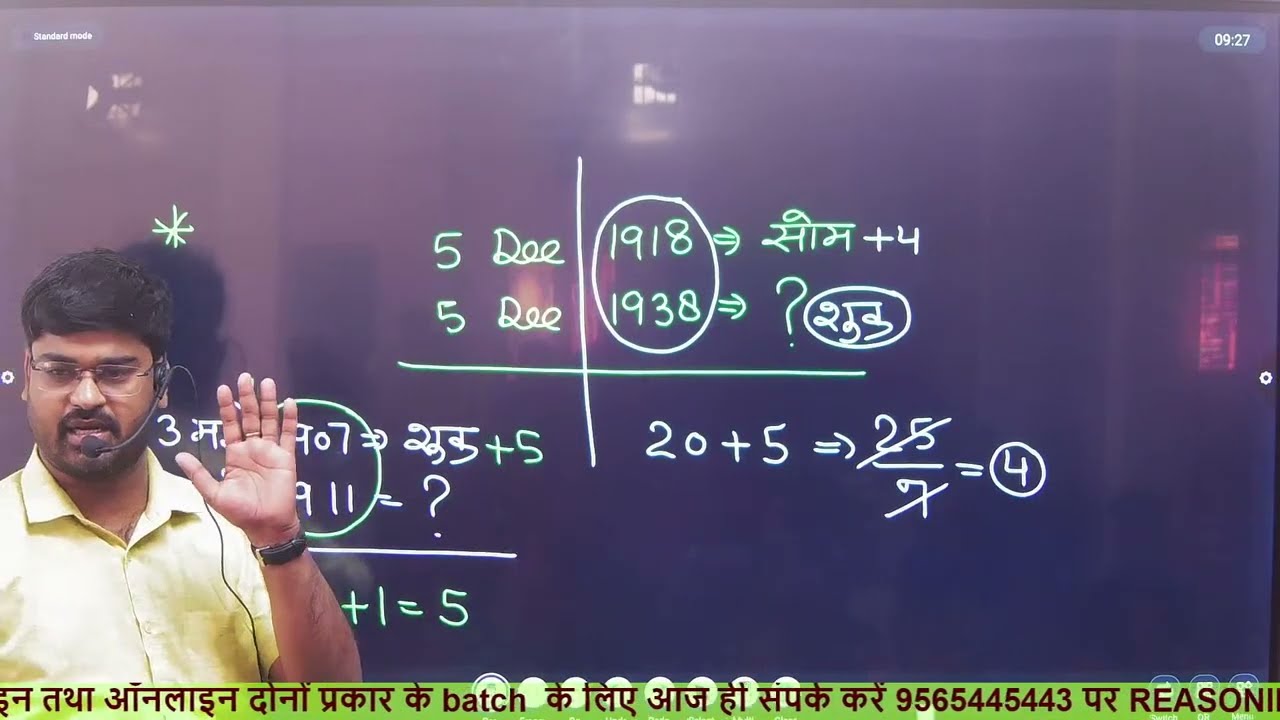 Standard mode
09:27
*
5 Dec 1918 ⇒ सोम +4
5 Dec 1938 ⇒ ? शुक्र
3 907 ⇒ शुक्र +5
911 = ?
+1 = 5
20 + 5 ⇒ 25/7 = 4
इन तथा ऑनलाइन दोनों प्रकार के batch के लिए आज ही संपर्क करें 9565445443 पर REASONI
Switch
Menu